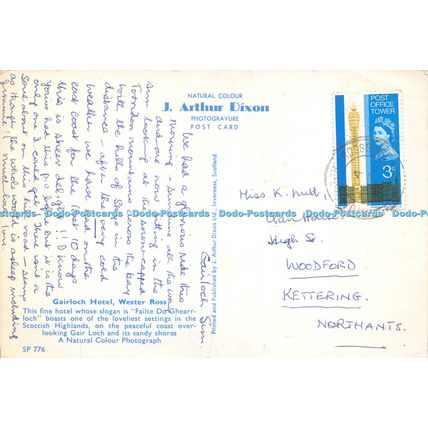 NATURAL COLOUR
J. Arthur Dixon
PHOTOGRAVURE
POST CARD
POST
OFFICE
TOWER
3d
Gairloch Sun.
We had a glorious ride this
morning - sunshine all the way
and are now sitting in the
sun looking at the snow-capped
Torridon mountains across the bay
with the hills of Skye in the
distance - after the very cold
weather we have had on the
east coast for the last 10 days
this is sheer delight!! I know
you've had this p.c. before but it is the
only one I could get. There isn't a
soul about on the road - seems
as though the whole world is asleep including
Jimmie! Much love
Gairloch Hotel, Wester Ross
This fine hotel whose slogan is "Failte Do Ghearr-
loch" boasts one of the loveliest settings in the
Scottish Highlands, on the peaceful coast over-
looking Gair Loch and its sandy shores
A Natural Colour Photograph
SP 776
Printed and Published by J. Arthur Dixon Ltd., Inverness, Scotland
Miss K. Nutt,
High St.
WOODFORD
KETTERING.
NORTHANTS.
Dodo-Postcards Dodo-Postcards Dodo-Postcards Dodo-Postcards Dodo-Postcards